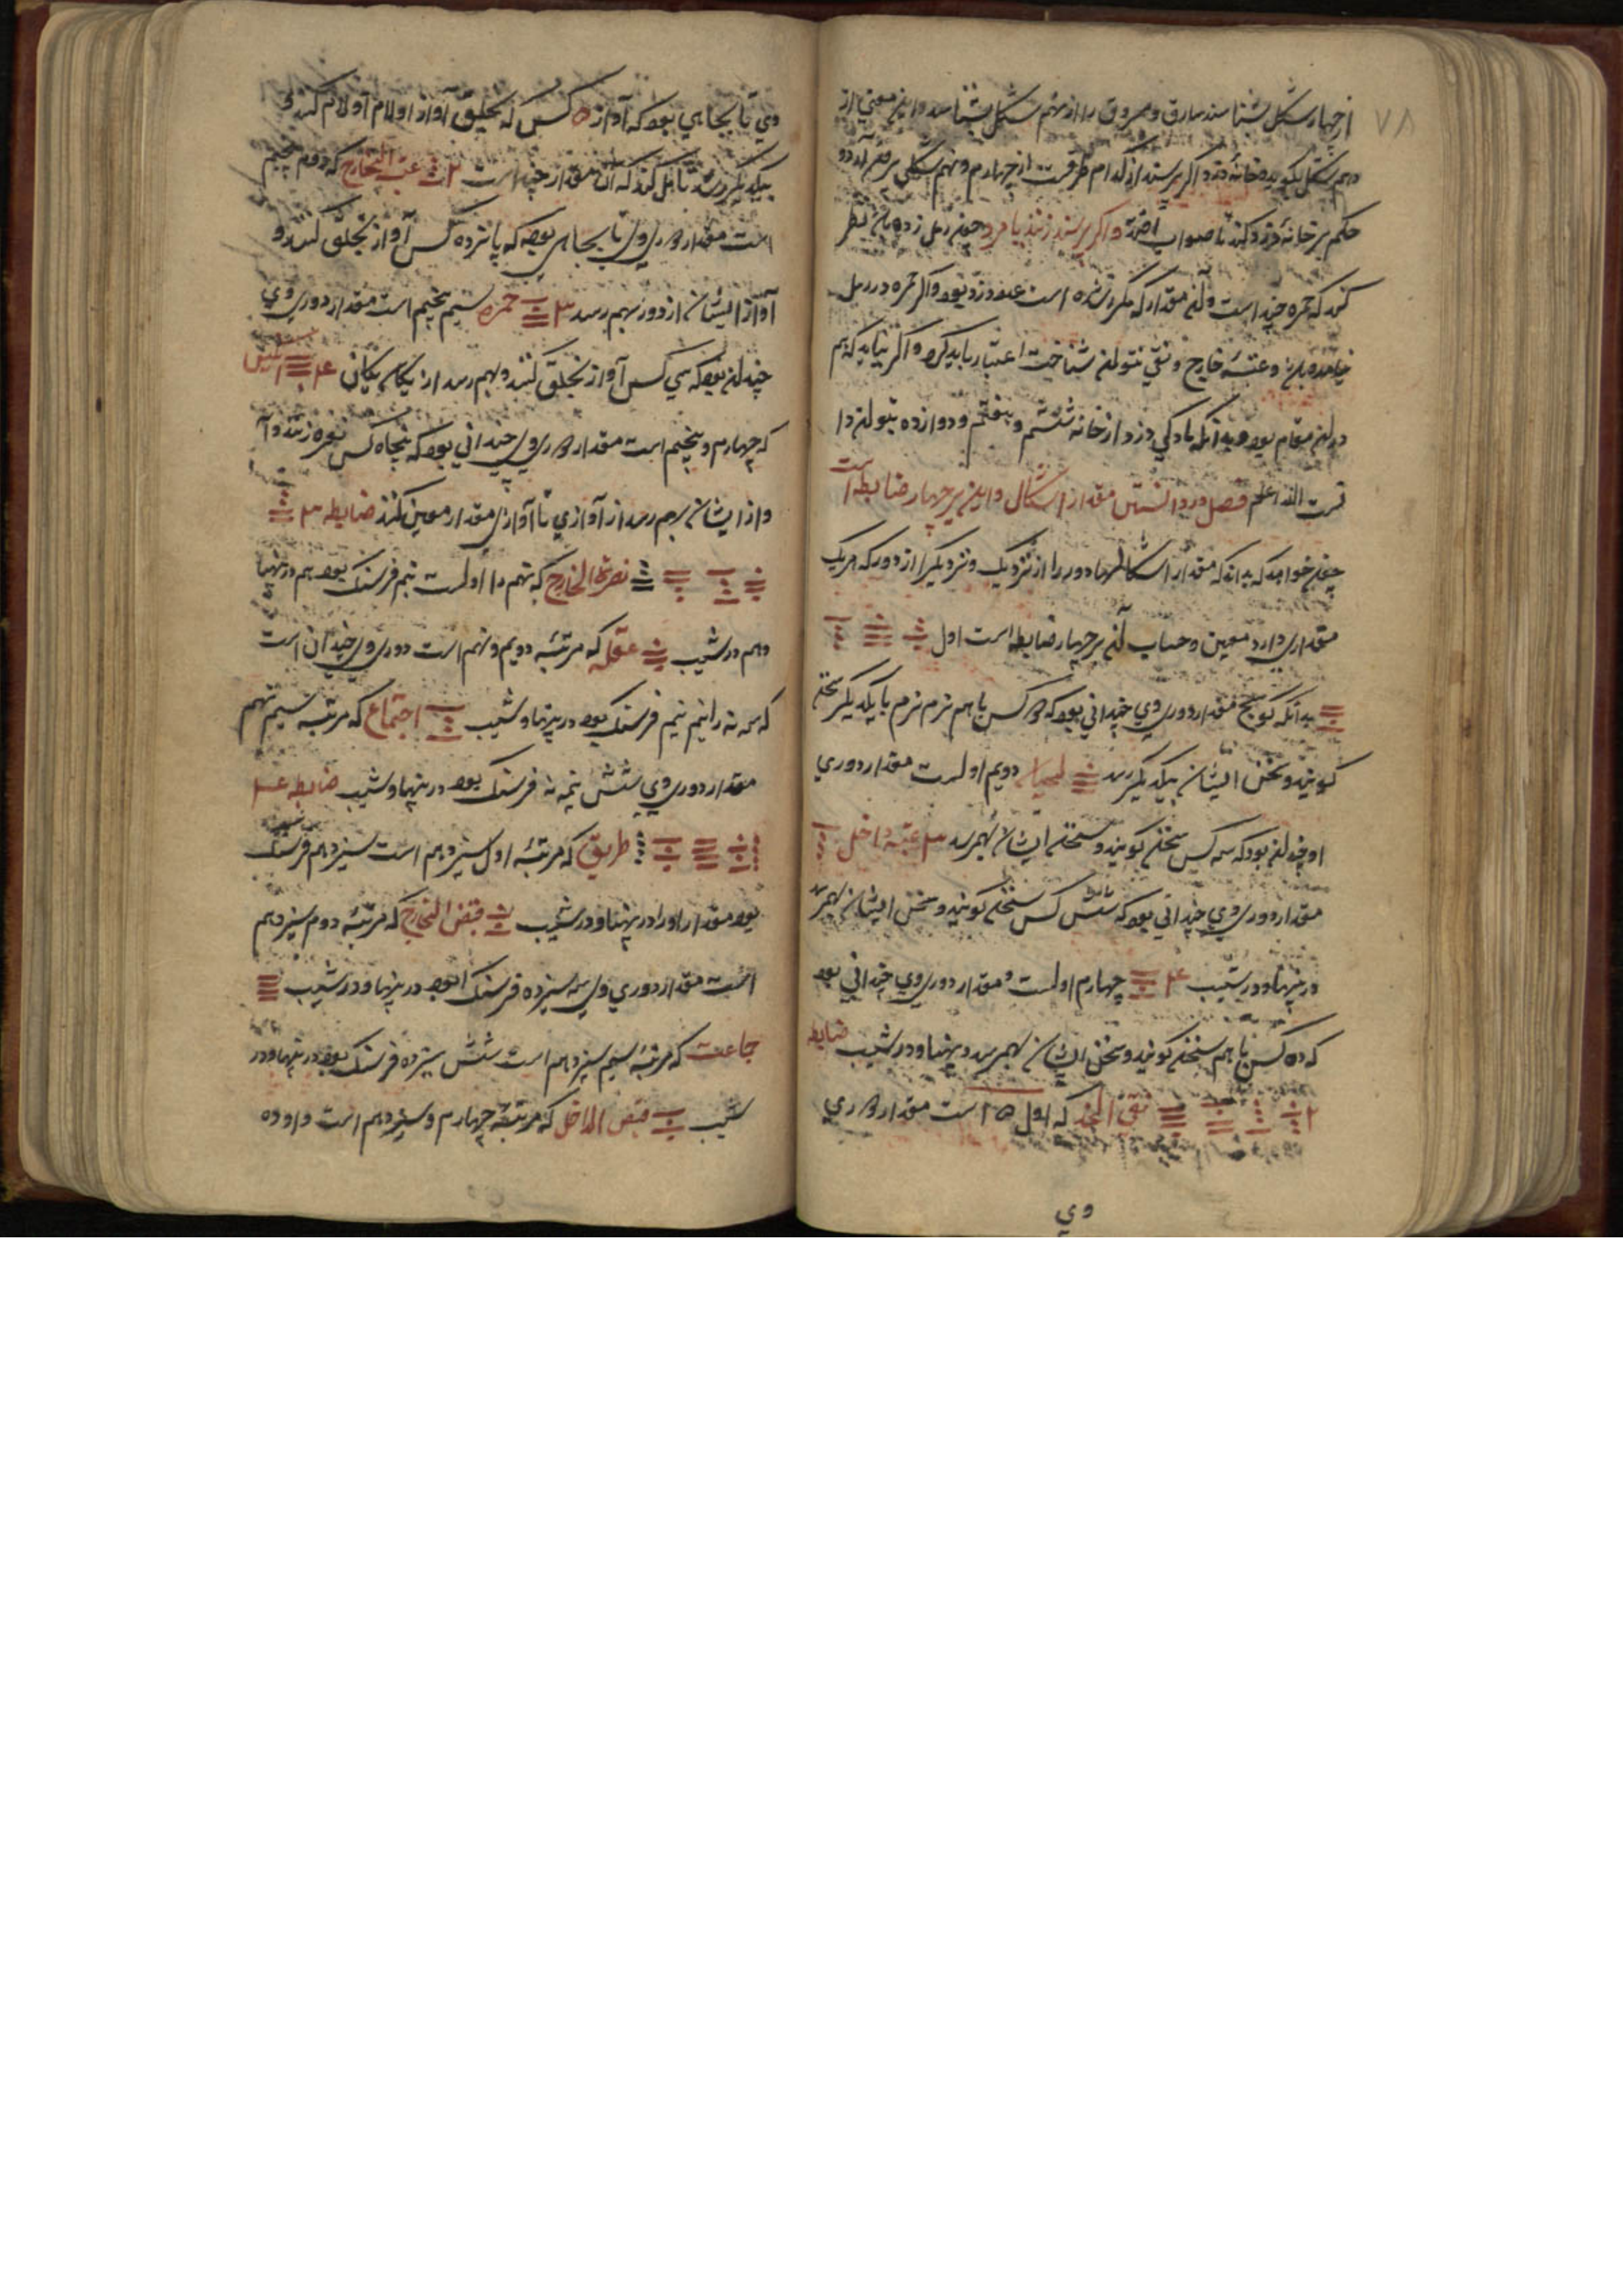 ۷۸
از چهار شکل بشناسند سارق و مسروق را از سهم شکل بشناسد و این معنی از
دهم شکل بگوید خانه دزد اگر پرسند از کدام طرفست از چهارم و نهم شکلی برون آرد و
حکم بر خانه دزد کند تا صواب افتد و اگر پرسند زنند یا مرد چون رمل زده باشد نظر
کند که حمره چند است و آن مقدار که مکرر شده است عدد دزد بود و اگر حمره در رمل
نیامده باشد و عتبه خارج و نقی بتوان شناخت اعتبار باید کرد و اگر نیاید که هم
در این مقام بود بدانکه بادگی دزد از خانه ششم و هفتم و دوازده بتوان دا
نست الله اعلم فصل در دانستن مقدار اشکال و این بر چهار ضابطه است
چون خواهد که بداند که مقدار اشکالها دور را از نزدیک و نزدیک را از دور که هر یک
مقداری دارد معین و حساب آن بر چهار ضابطه است اول
بدانکه گویم مقدار دوری وی چندانی بود که دو کس باهم نرم نرم با یکدیگر سخن
گویند و سخن ایشان بیکدیگر رسد لحیان دویم اولست مقدار دوری
او چندان بود که سه کس سخن گویند و سخن ایشان بهم رسد ۳ عتبه داخل
مقدار دوری وی چندانی بود که شش کس سخن گویند و سخن ایشان بهم رسد
در پهنا و در شیب ۴ چهارم اولست و مقدار دوری وی چندانی بود
که ده کس با هم سخن گویند و سخن ایشان بهم رسد در پهنا و در شیب ضابطه
۲ نقی الخد که اول ۵ است مقدار دوری
وی
وی تا بجایی بود که آواز ۵ کس که بحلق آواز اولام اولام کنند و
بیکدیگر رسد تأمل کند که آن مقدار چند است ۲ عتبة الخارج که دوم پنجم
است مقدار دوری وی تا بجایی بود که پانزده کس آواز بحلق کنند و
آواز ایشان از دور بهم رسد ۳ حمره سیم پنجم است مقدار دوری وی
چندان بود که سی کس آواز بحلق کنند و بهم رسد از یکان یکان ۴ انکیس
که چهارم و پنجم است مقدار دوری وی چندانی بود که پنجاه کس نعره زنند و آ
واز ایشان بهم رسد از آوازی تا آوازی مقدار معین کنند ضابطه ۳
نصرة الخارج که نهم را اولست نیم فرسنگ بود هم در پهنا
و هم در شیب عقله که مرتبه دویم و نهم است دوری وی چندان است
که سه نه را نیم نیم فرسنگ بود در پهنا و شیب اجتماع که مرتبه سیم نهم
مقدار دوری وی شش نیمه نه فرسنگ بود در پهنا و شیب ضابطه ۴
طریق که مرتبه اول سیزدهم است سیزدهم فرسنگ
بود مقدار او را در پهنا و در شیب قبض الخارج که مرتبه دوم سیزدهم
است مقدار دوری وی سه سیزده فرسنگ بود در پهنا و در شیب
جماعت که مرتبه سیم سیزدهم است شش سیزده فرسنگ بود در پهنا و در
شیب قبض الداخل که مرتبه چهارم و سیزدهم است و او ده